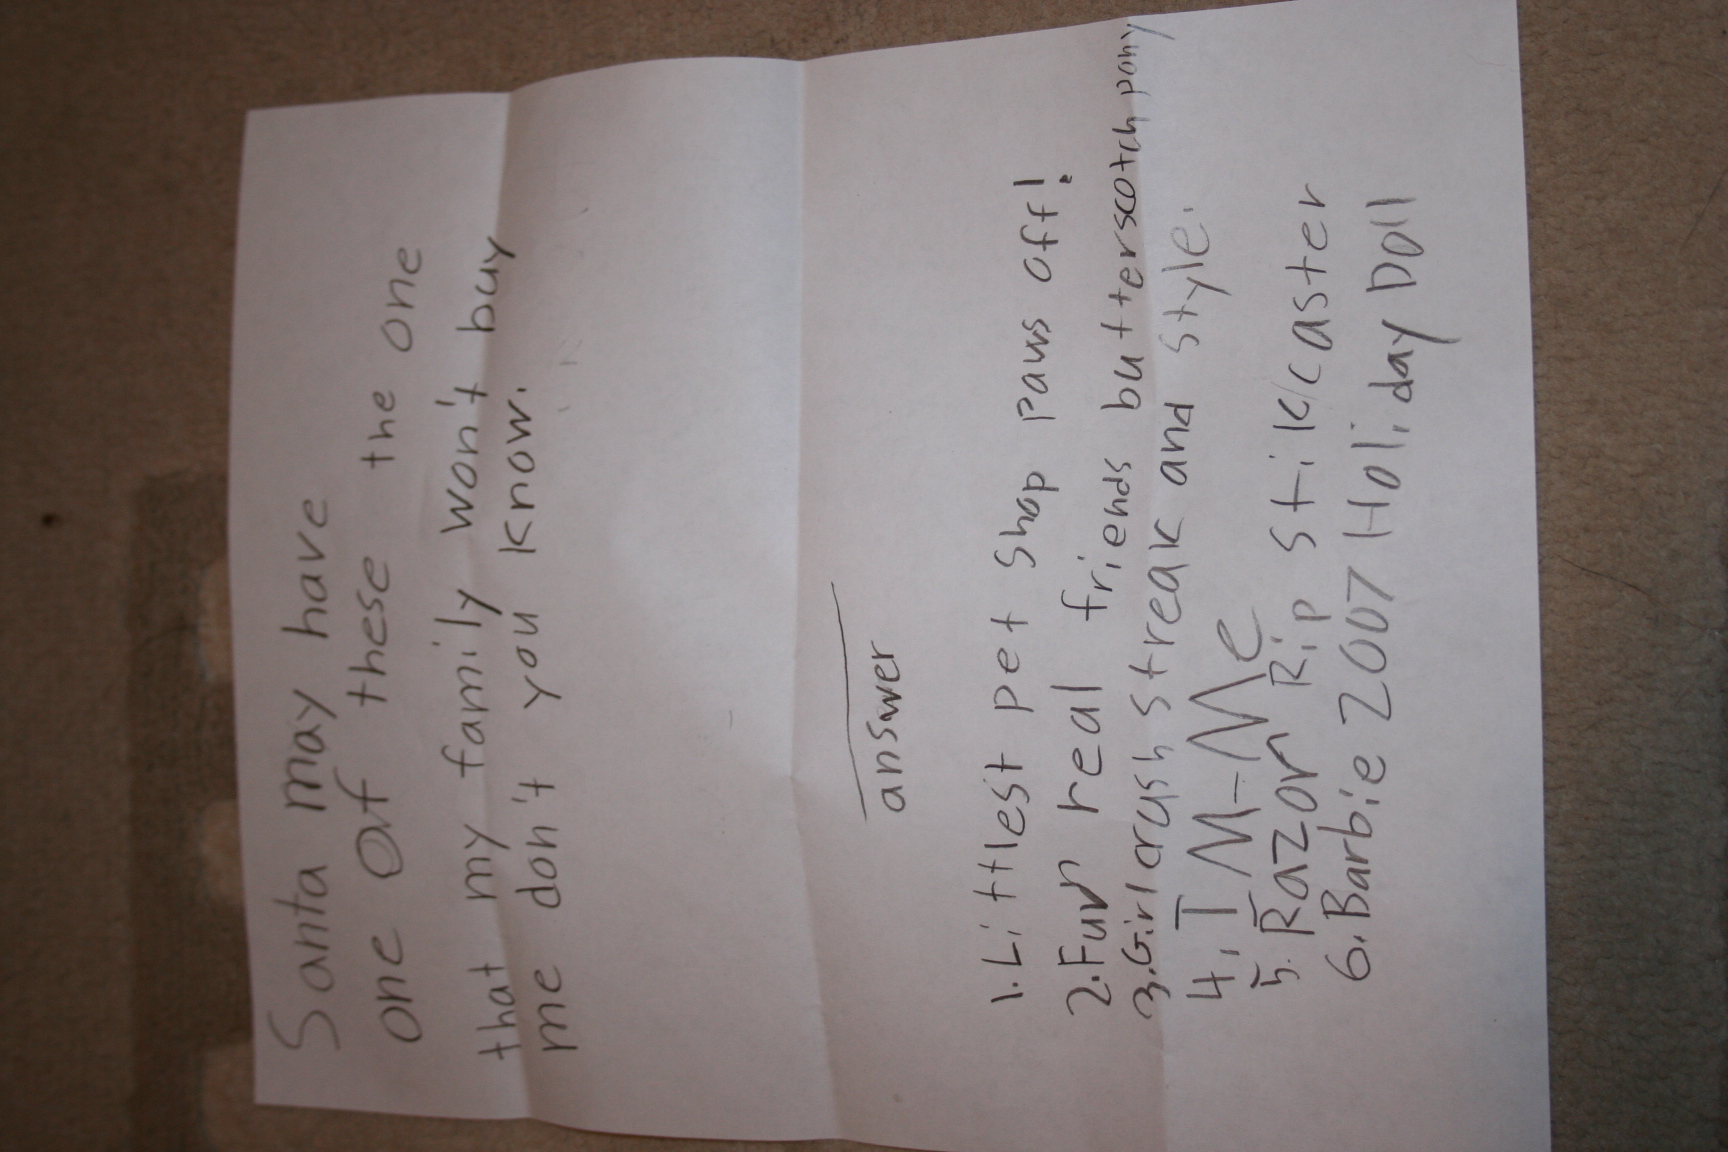 Santa may have
one of these the one
that my family won't buy
me don't you know.
answer
1. Littlest pet shop paws off!
2. Fur real friends butterscotch pony
3. Girl crush streak and style.
4. T M-N e
5. Razor Rip stik/caster
6. Barbie 2007 Holiday Doll